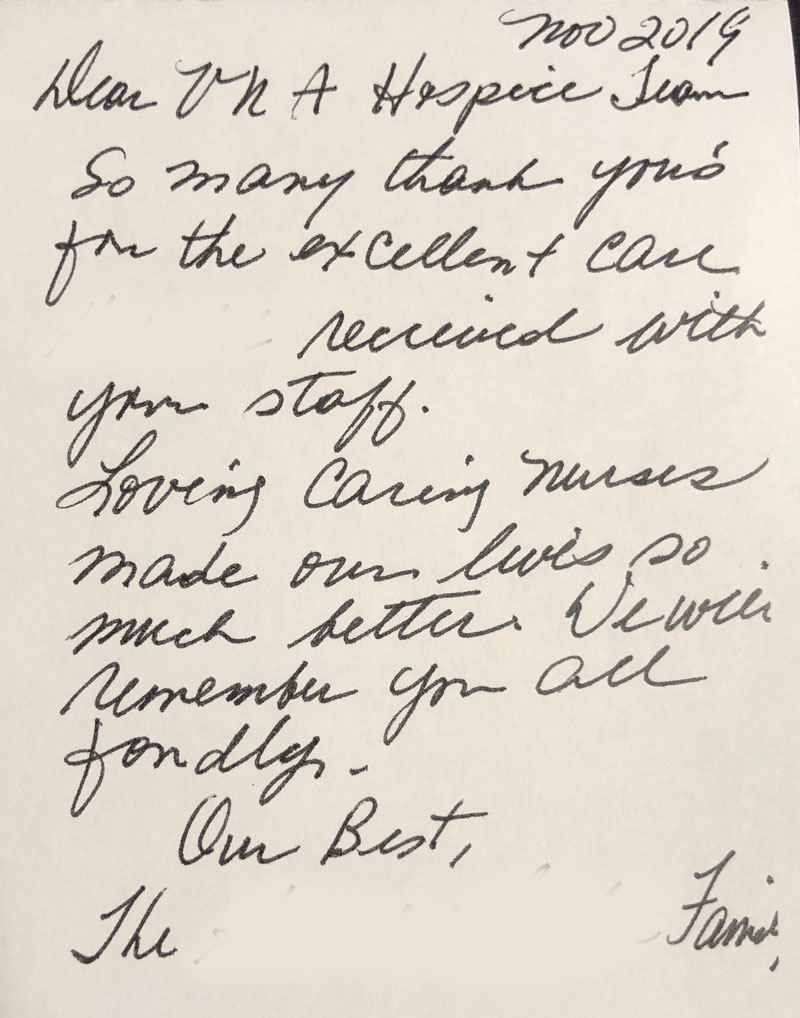 Nov 2019
Dear VNA Hospice Team
So many thank you's
for the excellent care
received with
your staff.
Loving Caring Nurses
made our lives so
much better. We will
remember you all
fondly.
Our Best,
The Family